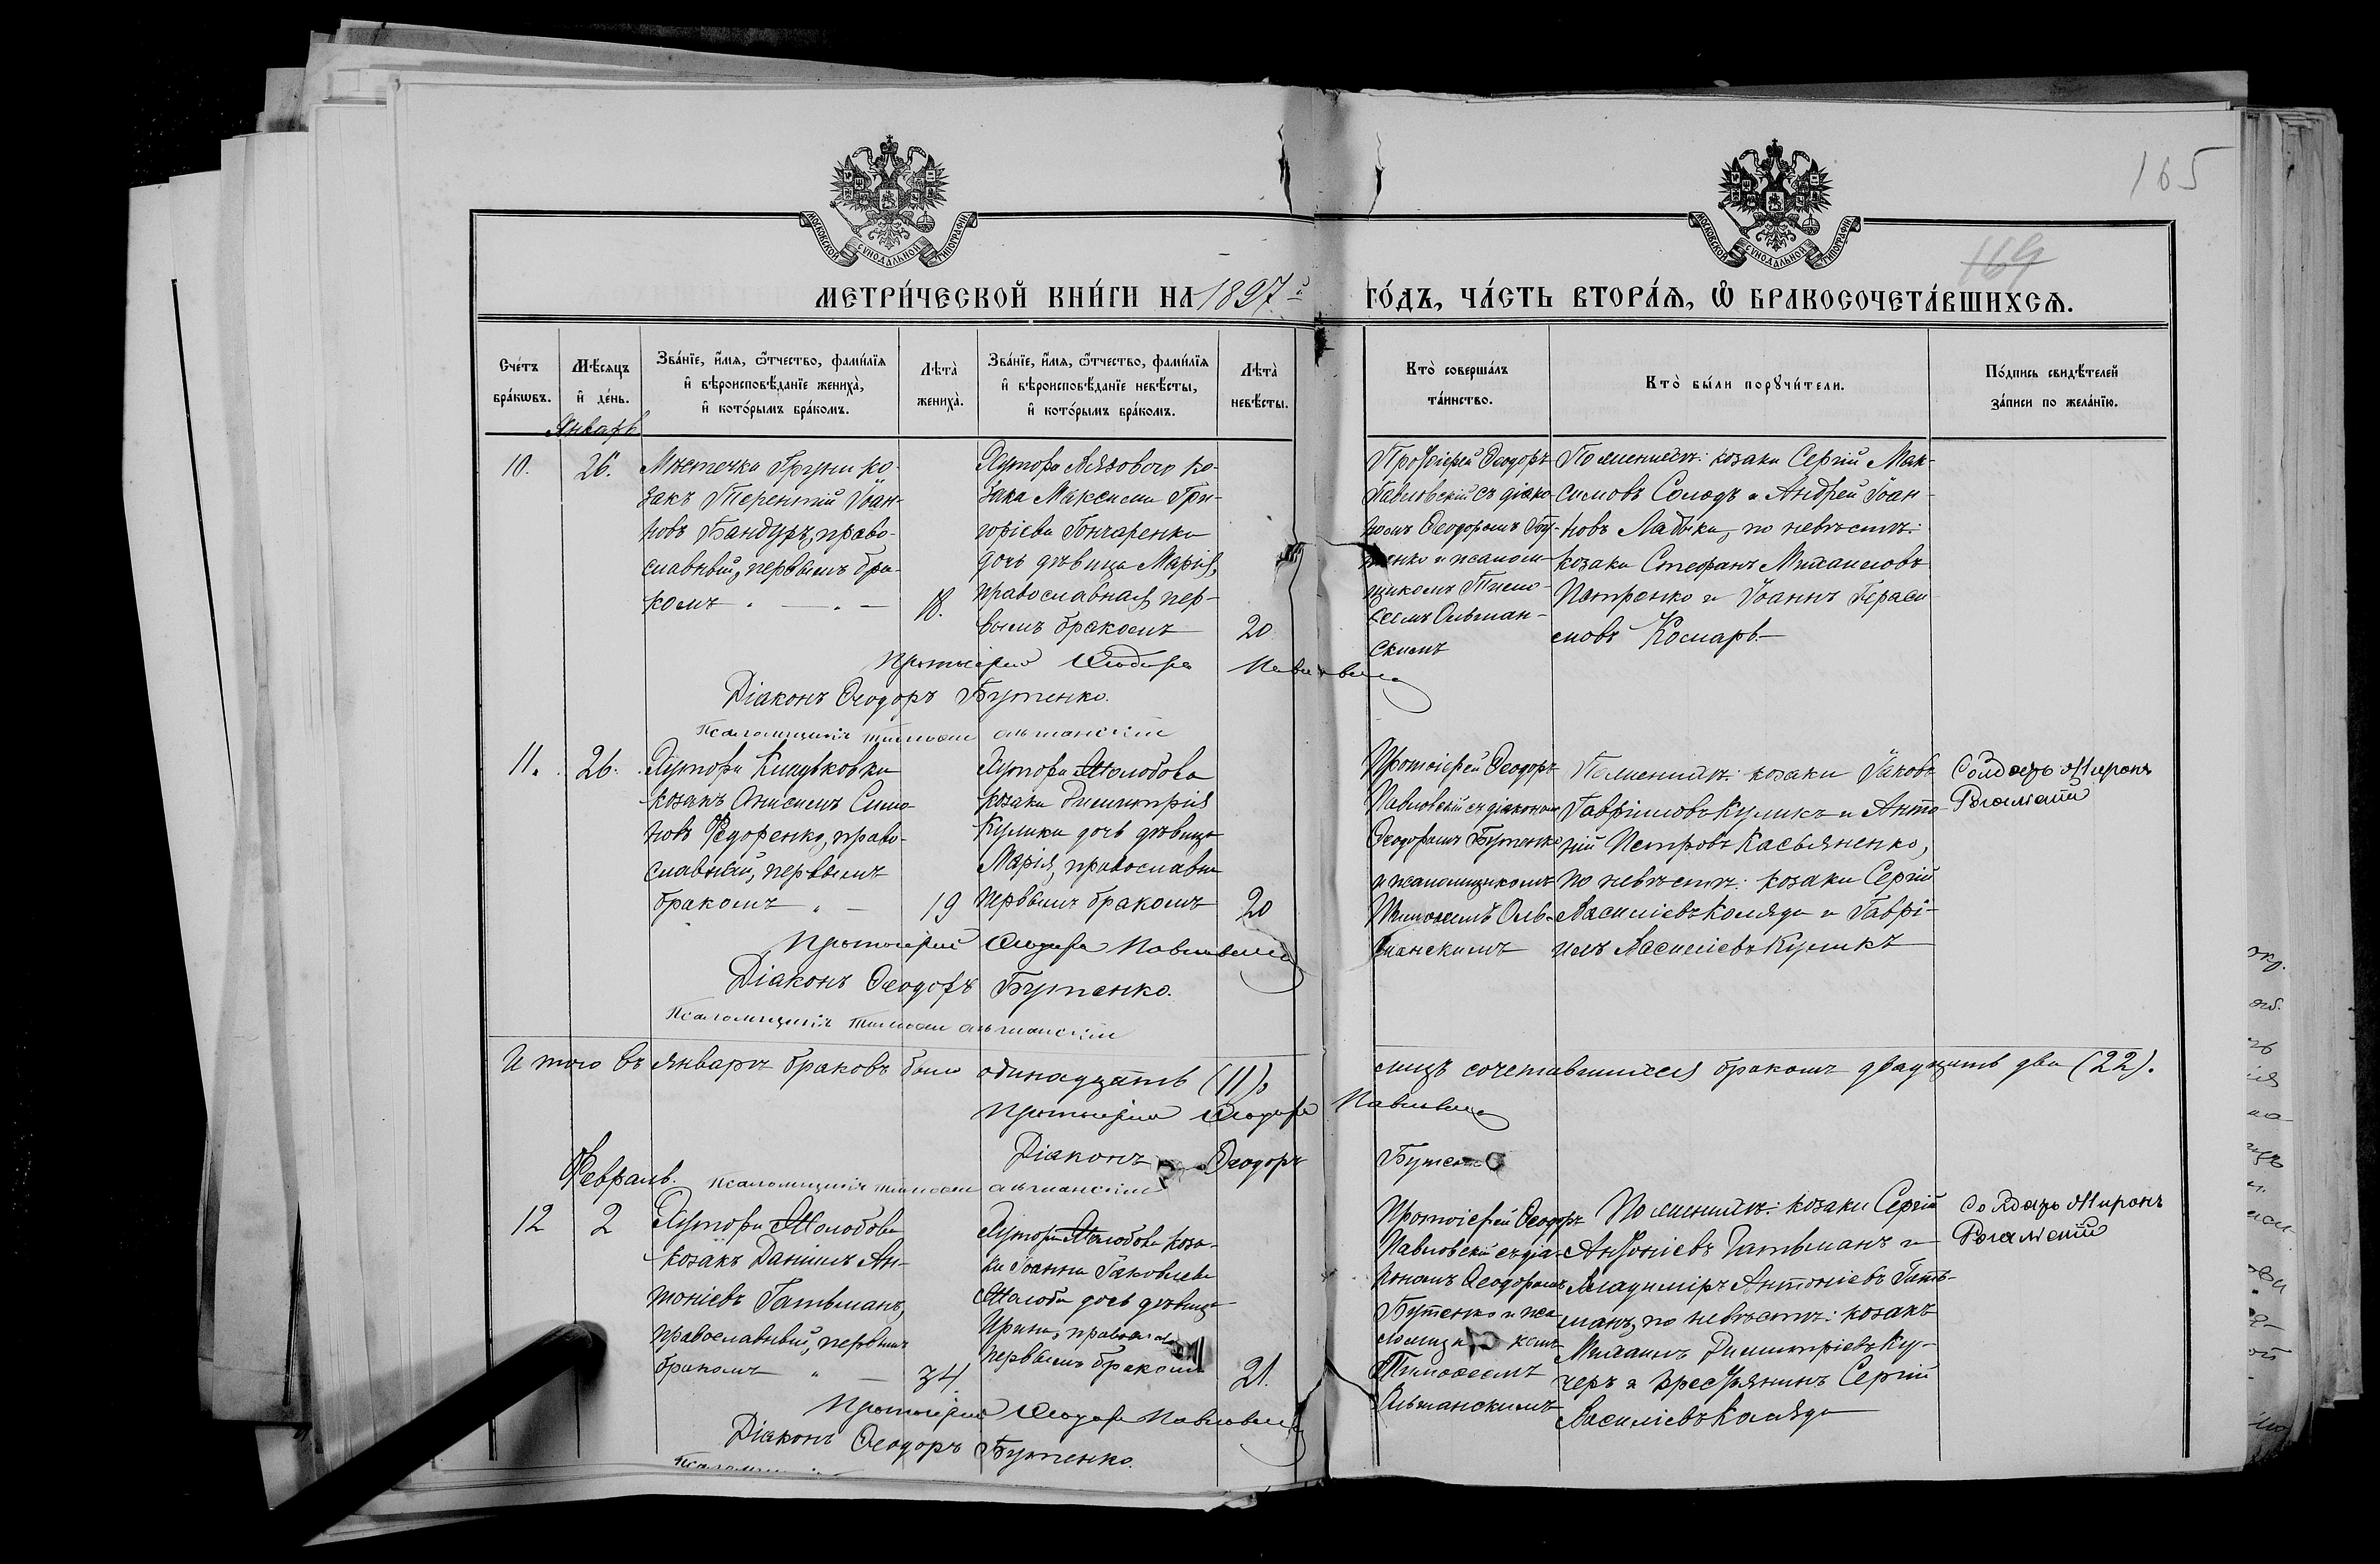 165
169
МОСКОВСКОЙ СУНОДАЛЬНОЙ ТИПОГРАФИИ
МОСКОВСКОЙ СУНОДАЛЬНОЙ ТИПОГРАФИИ
МЕТРИ́ЧЕСКОЙ КНИ́ГИ НА 1897й ГО́ДЪ, ЧА́СТЬ ВТОРА́Я, Ѡ БРАКОСОЧЕТА́ВШИХСѦ.
Сче́тъ
бра́кωвъ.
Мѣ́сяцъ
и́ де́нь.
Зва́нїе, и́мя, ѻ́тчество, фами́лїя
и́ вѣроисповѣ́данїе жениха̀,
и́ кото́рымъ бра́комъ.
Лѣта̀
жениха̀.
Зва́нїе, и́мя, ѻ́тчество, фами́лїя
и́ вѣроисповѣ́данїе невѣ́сты,
и́ кото́рымъ бра́комъ.
Лѣта̀
невѣ́сты.
Кто̀ соверша́лъ
та́инство.
Кто̀ бы́ли порꙋчи́тели.
По́дпись свидѣ́телей
за́писи по жела́нїю.
Январь
10.
26.
Мѣстечка Груни ко-
закъ Терентій Іоан-
новъ Бандуръ, право-
славный, первымъ бра-
комъ
18.
Хутора Лязового ко-
зака Максима Гри-
горіева Гончаренка
дочь дѣвица Марія,
православная, пер-
вымъ бракомъ
20
Протоіерей Ѳеодоръ
Павловскій съ діако-
номъ Ѳеодоромъ Бу-
тенко и псалом-
щикомъ Тимо-
ѳеемъ Ольшан-
скимъ
По женихѣ: козаки Сергій Мак-
симовъ Солодъ и Андрей Іоан-
новъ Ладыка, по невѣстѣ:
козаки Стефанъ Михаиловъ
Петренко и Іоаннъ Гераси-
мовъ Комарь.
Протоіерей Ѳеодоръ Павловскій
Діаконъ Ѳеодоръ Бутенко.
Псаломщикъ Тимоѳей Ольшанскій
11.
26.
Хутора
козакъ Онисимъ Симо-
новъ Федоренко, право-
славный, первымъ
бракомъ
19
Хутора Молобова
козака Димитрія
Кулика дочь дѣвица
Марія, православна
первымъ бракомъ
20
Протоіерей Ѳеодоръ
Павловскій съ діакономъ
Ѳеодоромъ Бутенко
и псаломщикомъ
Тимоѳеемъ Оль-
шанскимъ
По женихѣ: козаки Іаковъ
Гавріиловъ Куликъ и Анто-
ній Петровъ Касьяненко,
по невѣстѣ: козаки Сергій
Василіевъ Коляда и Гаврі-
илъ Василіевъ Куликъ
Солдатъ Миронъ
Протоіерей Ѳеодоръ Павловскій
Діаконъ Ѳеодоръ Бутенко.
Псаломщикъ Тимоѳей Ольшанскій
Итого въ январѣ браковъ было одинадцать (11),
лицъ сочетавшихся бракомъ двадцать два (22).
Протоіерей Ѳеодоръ Павловскій
Діаконъ Ѳеодоръ Бутенко
Псаломщикъ Тимоѳей Ольшанскій
Февраль.
12
2
Хутора Молобова
козакъ Даніилъ Ан-
тоніевъ Гатьманъ,
православный, первымъ
бракомъ
34
Хутора Молобова коза-
ка Іоанна Іаковлева
дочь дѣвица
Ирина, православн
первымъ бракомъ
21.
Протоіерей Ѳеодоръ
Павловскій съ діа-
кономъ Ѳеодоромъ
Бутенко и пса-
ломщикомъ
Тимоѳеемъ
Ольшанскимъ
По женихѣ: козаки Сергій
Антоніевъ Гатьманъ и
Владиміръ Антоніевъ Гать-
манъ, по невѣстѣ: козакъ
Михаилъ Димитріевъ Ку-
черъ и крестьянинъ Сергій
Василіевъ Коляда
Солдатъ Миронъ
Протоіерей Ѳеодоръ Павловскій
Діаконъ Ѳеодоръ Бутенко.